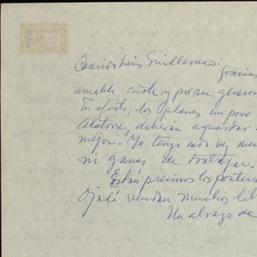 Querido Luis Guillermo:
Gracias
amable carta y por su generos
En efecto, los planes un poco
Alatorre, deberán aguardar
mejor. Yo tengo cada vez men
ni ganas de trabajar.
Están preciosos los posters
Ojalá vendan muchos lib
Un abrazo de